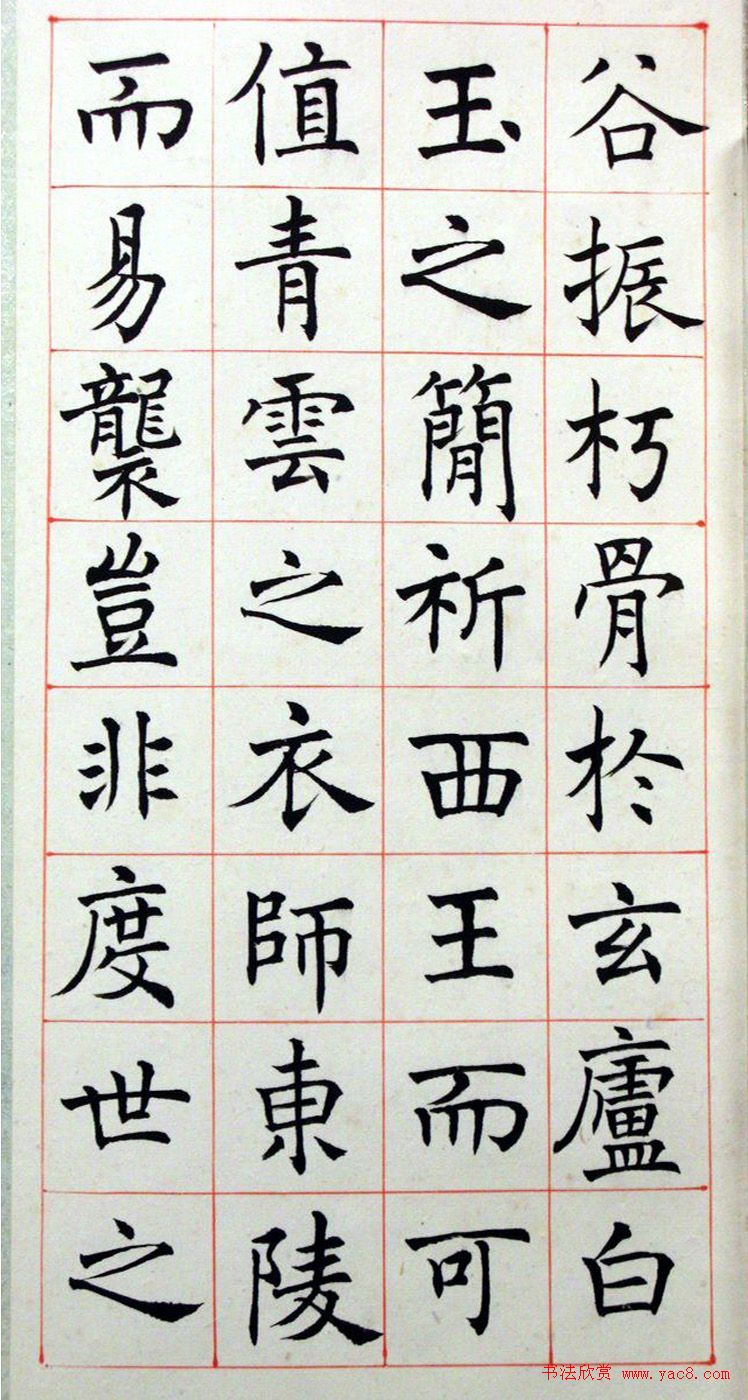 谷振朽骨於玄廬白
玉之簡祈西王而可
值青雲之衣師東陵
而易襲豈非度世之
书法欣赏 www.yac8.com